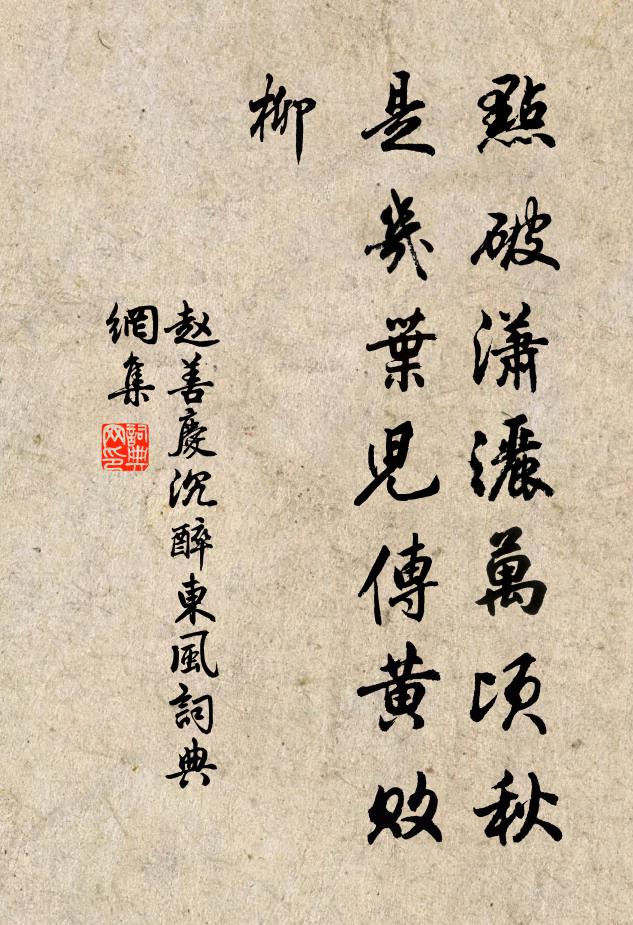 點破瀟灑萬頃秋
是幾葉兒傳黃敗
柳
赵善慶沉醉東風詞典
網集
詞典
网印